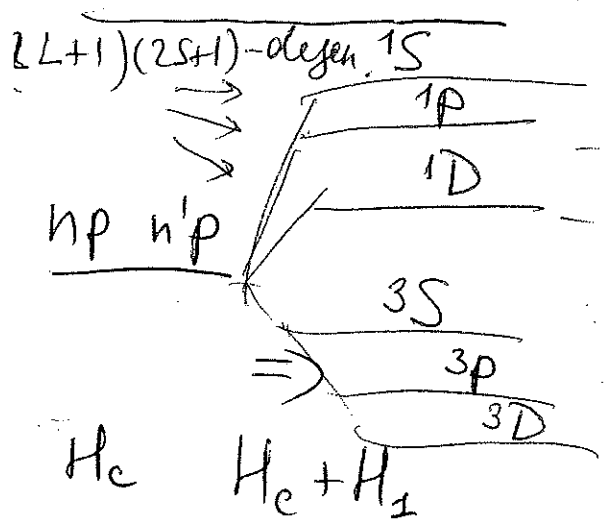 2L+1)(2S+1)-degen. ¹S
¹P
¹D
np n'p
³S
⇒ ³P
³D
Hc Hc + H₁